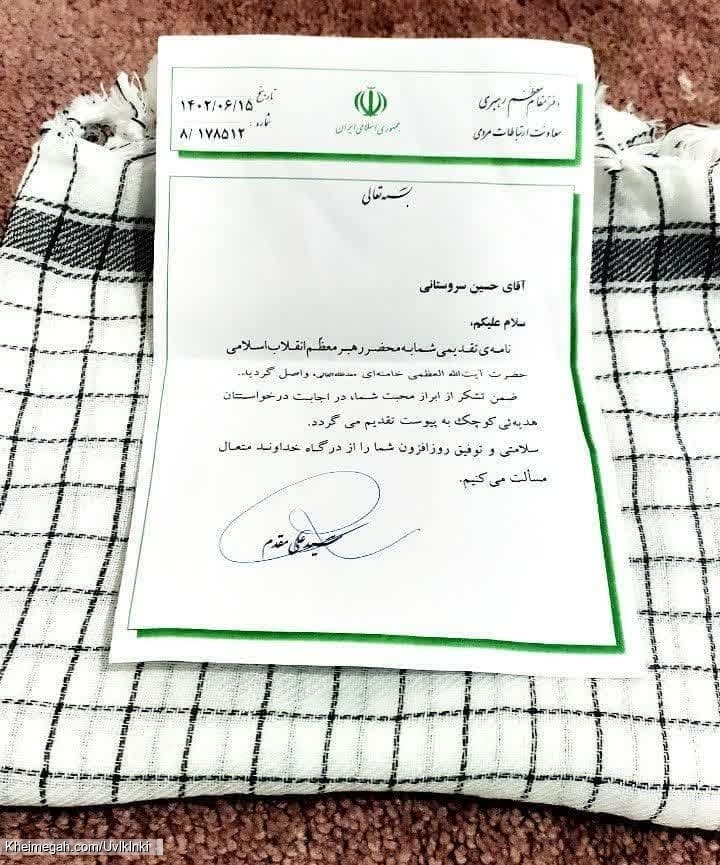 دفتر مقام معظم رهبری
معاونت ارتباطات مردمی
جمهوری اسلامی ایران
تاریخ ۱۴۰۲/۰۶/۱۵
شماره: ۸/ ۱۷۸۵۱۲
بسمه تعالی
آقای حسین سروستانی
سلام علیکم،
نامه‌ی تقدیمی شما به محضر رهبر معظم انقلاب اسلامی
حضرت آیت‌الله العظمی خامنه‌ای مدظله‌العالی، واصل گردید.
ضمن تشکر از ابراز محبت شما، در اجابت درخواستان
هدیه‌ئی کوچک به پیوست تقدیم می گردد.
سلامتی و توفیق روزافزون شما را از درگاه خداوند متعال
مسألت می کنیم.
سید علی مقدم
Kheimegah.com/UvlkInki